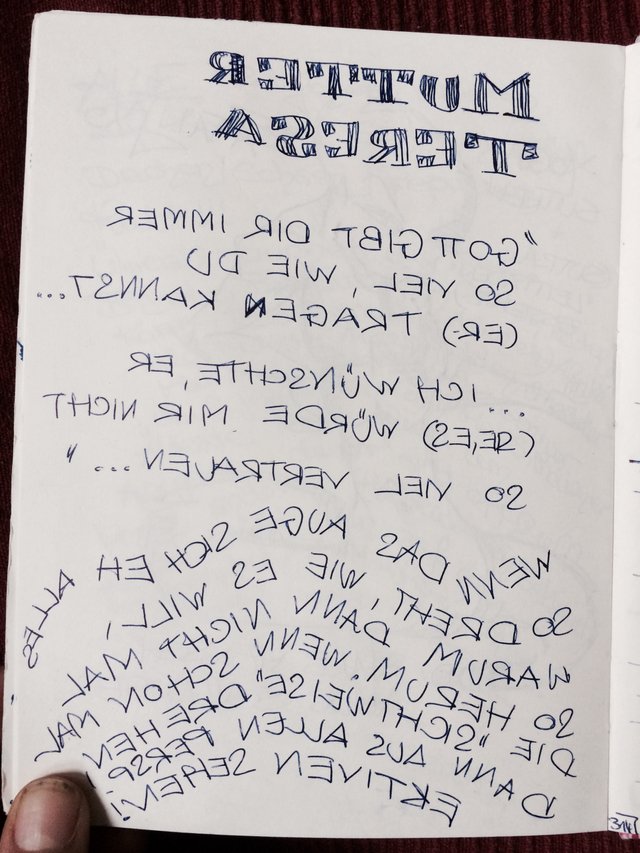 MUTTER
TERESA
"GOTT GIBT DIR IMMER
SO VIEL, WIE DU
(ER-) TRAGEN KANNST...
...ICH WÜNSCHTE, ER
(SIE, ES) WÜRDE MIR NICHT
SO VIEL VERTRAUEN..."
WENN DAS AUGE SICH EH ALLES
SO DREHT, WIE ES WILL,
WARUM DANN NICHT MAL
SO HERUM. WENN SCHON MAL
DIE "SICHTWEISE" DREHEN
DANN AUS ALLEN PERSP-
EKTIVEN SEHEN!